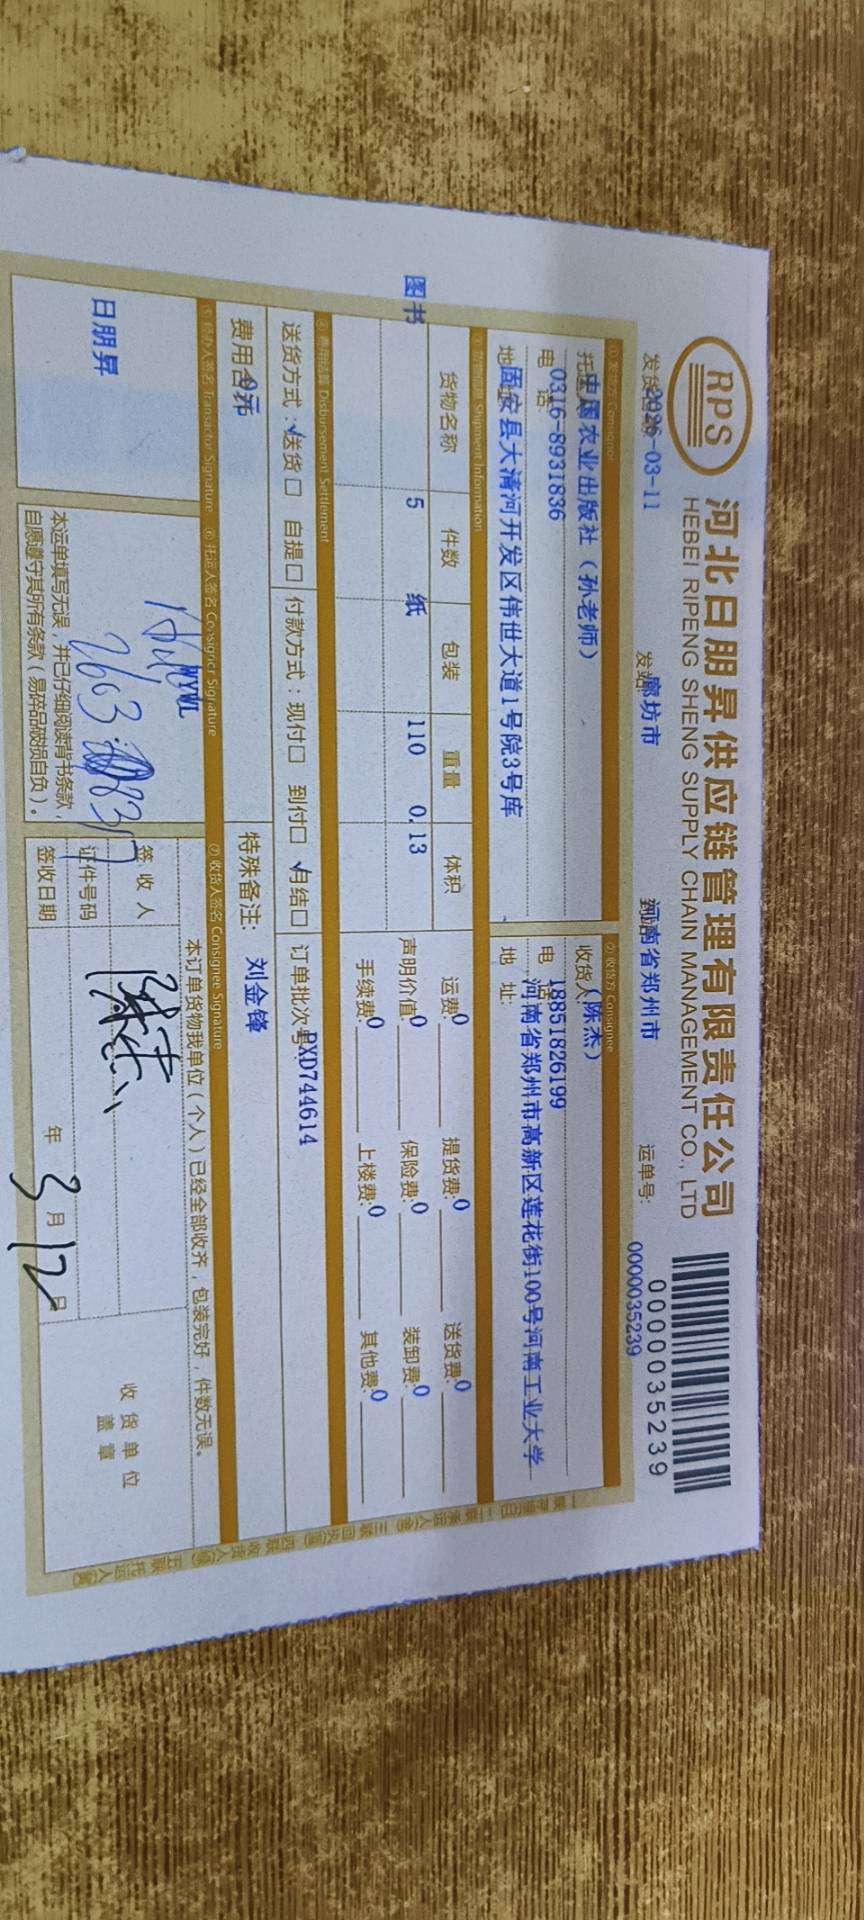 RPS
河北日朋昇供应链管理有限责任公司
HEBEI RIPENG SHENG SUPPLY CHAIN MANAGEMENT CO., LTD
0000035239
发货日期 2026-03-11 发站: 廊坊市 到站: 河南省郑州市 运单号: 0000035239
① 发货方 Consignor ② 收货方 Consignee
托运人 中国农业出版社（孙老师） 收货人 （陈杰）
电 话: 0316-8931836 电 话: 18851826199
地 址: 固安县大清河开发区伟世大道1号院3号库 地 址: 河南省郑州市高新区莲花街100号河南工业大学
③ 货物信息 Shipment Information
货物名称 件数 包装 重量 体积 运费: 0 提货费: 0 送货费: 0
图书 5 纸 110 0.13 声明价值: 0 保险费: 0 装卸费: 0
手续费: 0 上楼费: 0 其他费: 0
④ 费用结算 Disbursement Settlement
送货方式: √送货□ 自提□ 付款方式: 现付□ 到付□ √月结□ 订单批次号: PXD744614
费用合计 0元 特殊备注: 刘金锋
⑤ 经办人签名 Transactor Signature ⑥ 托运人签名 Consignor Signature ⑦ 收货人签名 Consignee Signature
日朋昇
WYWL
本运单填写无误，并已仔细阅读背书条款，
自愿遵守其所有条款（易碎品破损自负）。
本订单货物我单位（个人）已经全部收齐，包装完好，件数无误。
签 收 人 陈杰
证件号码
签收日期 年 3 月 12 日
收 货 单 位
盖 章